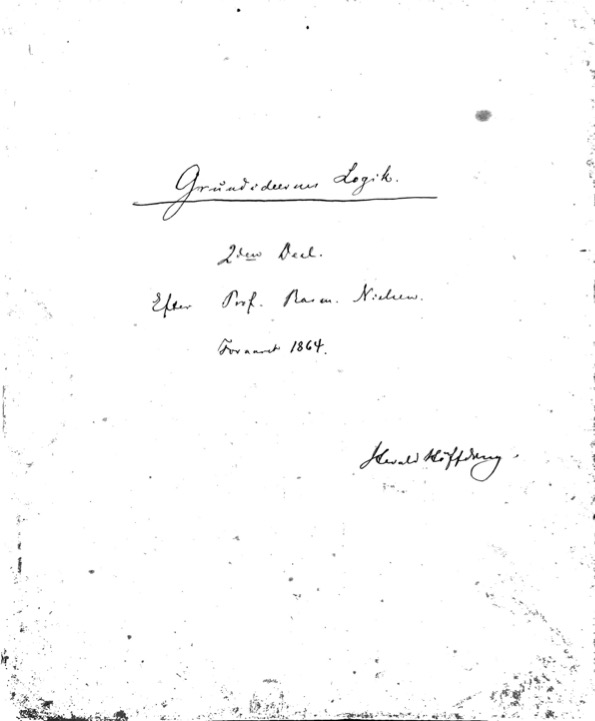 Grundideernes Logik.
2den Deel.
Efter Prof. Rasm. Nielsen.
Foraaret 1864.
Harald Höffding